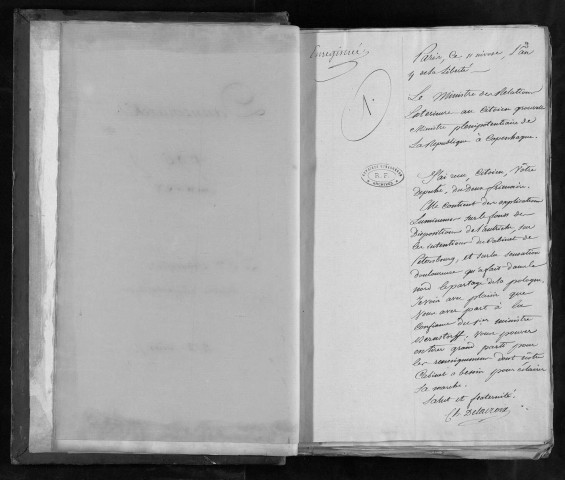 Enregistré
1.
Paris, ce 11 nivose, l'an
4 de la Liberté
Le Ministre des Relations
Exterieures au Citoien grouvelle
Ministre plenipotentiaire de
La République à Copenhague.
J'ai reçu, Citoien, Votre
Depeche, du Deux frimaire.
Elle contient des explications
Lumineuses sur le fonds des
Dispositions de l'autriche, sur
Les intentions du Cabinet de
Petersbourg, et sur la sensation
douloureuse qu'a fait dans le
nord le partage de la pologne.
Je vois avec plaisir que
Vous avez part à la
Confiance du 1er ministre
Bernstorff. Vous pouvez
en tirer grand parti pour
les renseignements dont notre
Cabinet a besoin pour éclairer
Sa marche.
Salut et fraternité.
Ch. Delacroix
R.F.
ARCHIVES